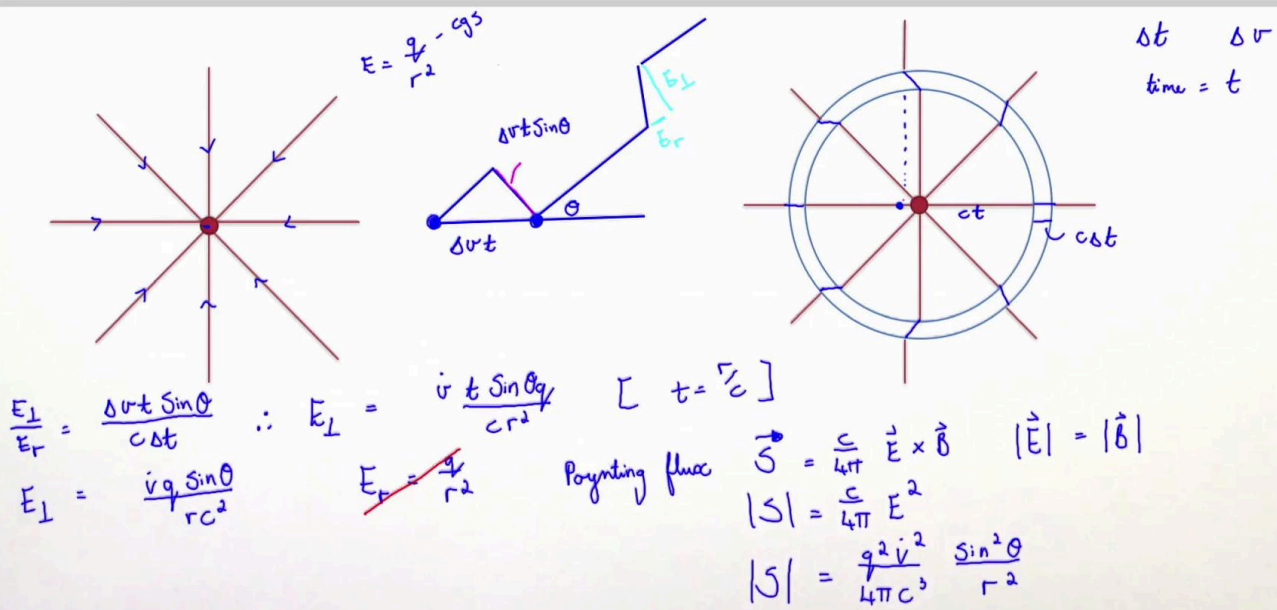 E = q/r² - cgs
Δvt Sinθ
E⊥
Er
θ
Δvt
Δt Δv
time = t
ct
cΔt
E⊥/Er = Δvt Sinθ / cΔt ∴ E⊥ = v̇ t Sinθ q / cr² [ t = r/c ]
E⊥ = v̇ q Sinθ / rc²
Er = q/r²
Poynting flux S⃗ = c/4π E⃗ × B⃗ |E⃗| = |B⃗|
|S| = c/4π E²
|S| = q² v̇² / 4πc³ Sin²θ / r²